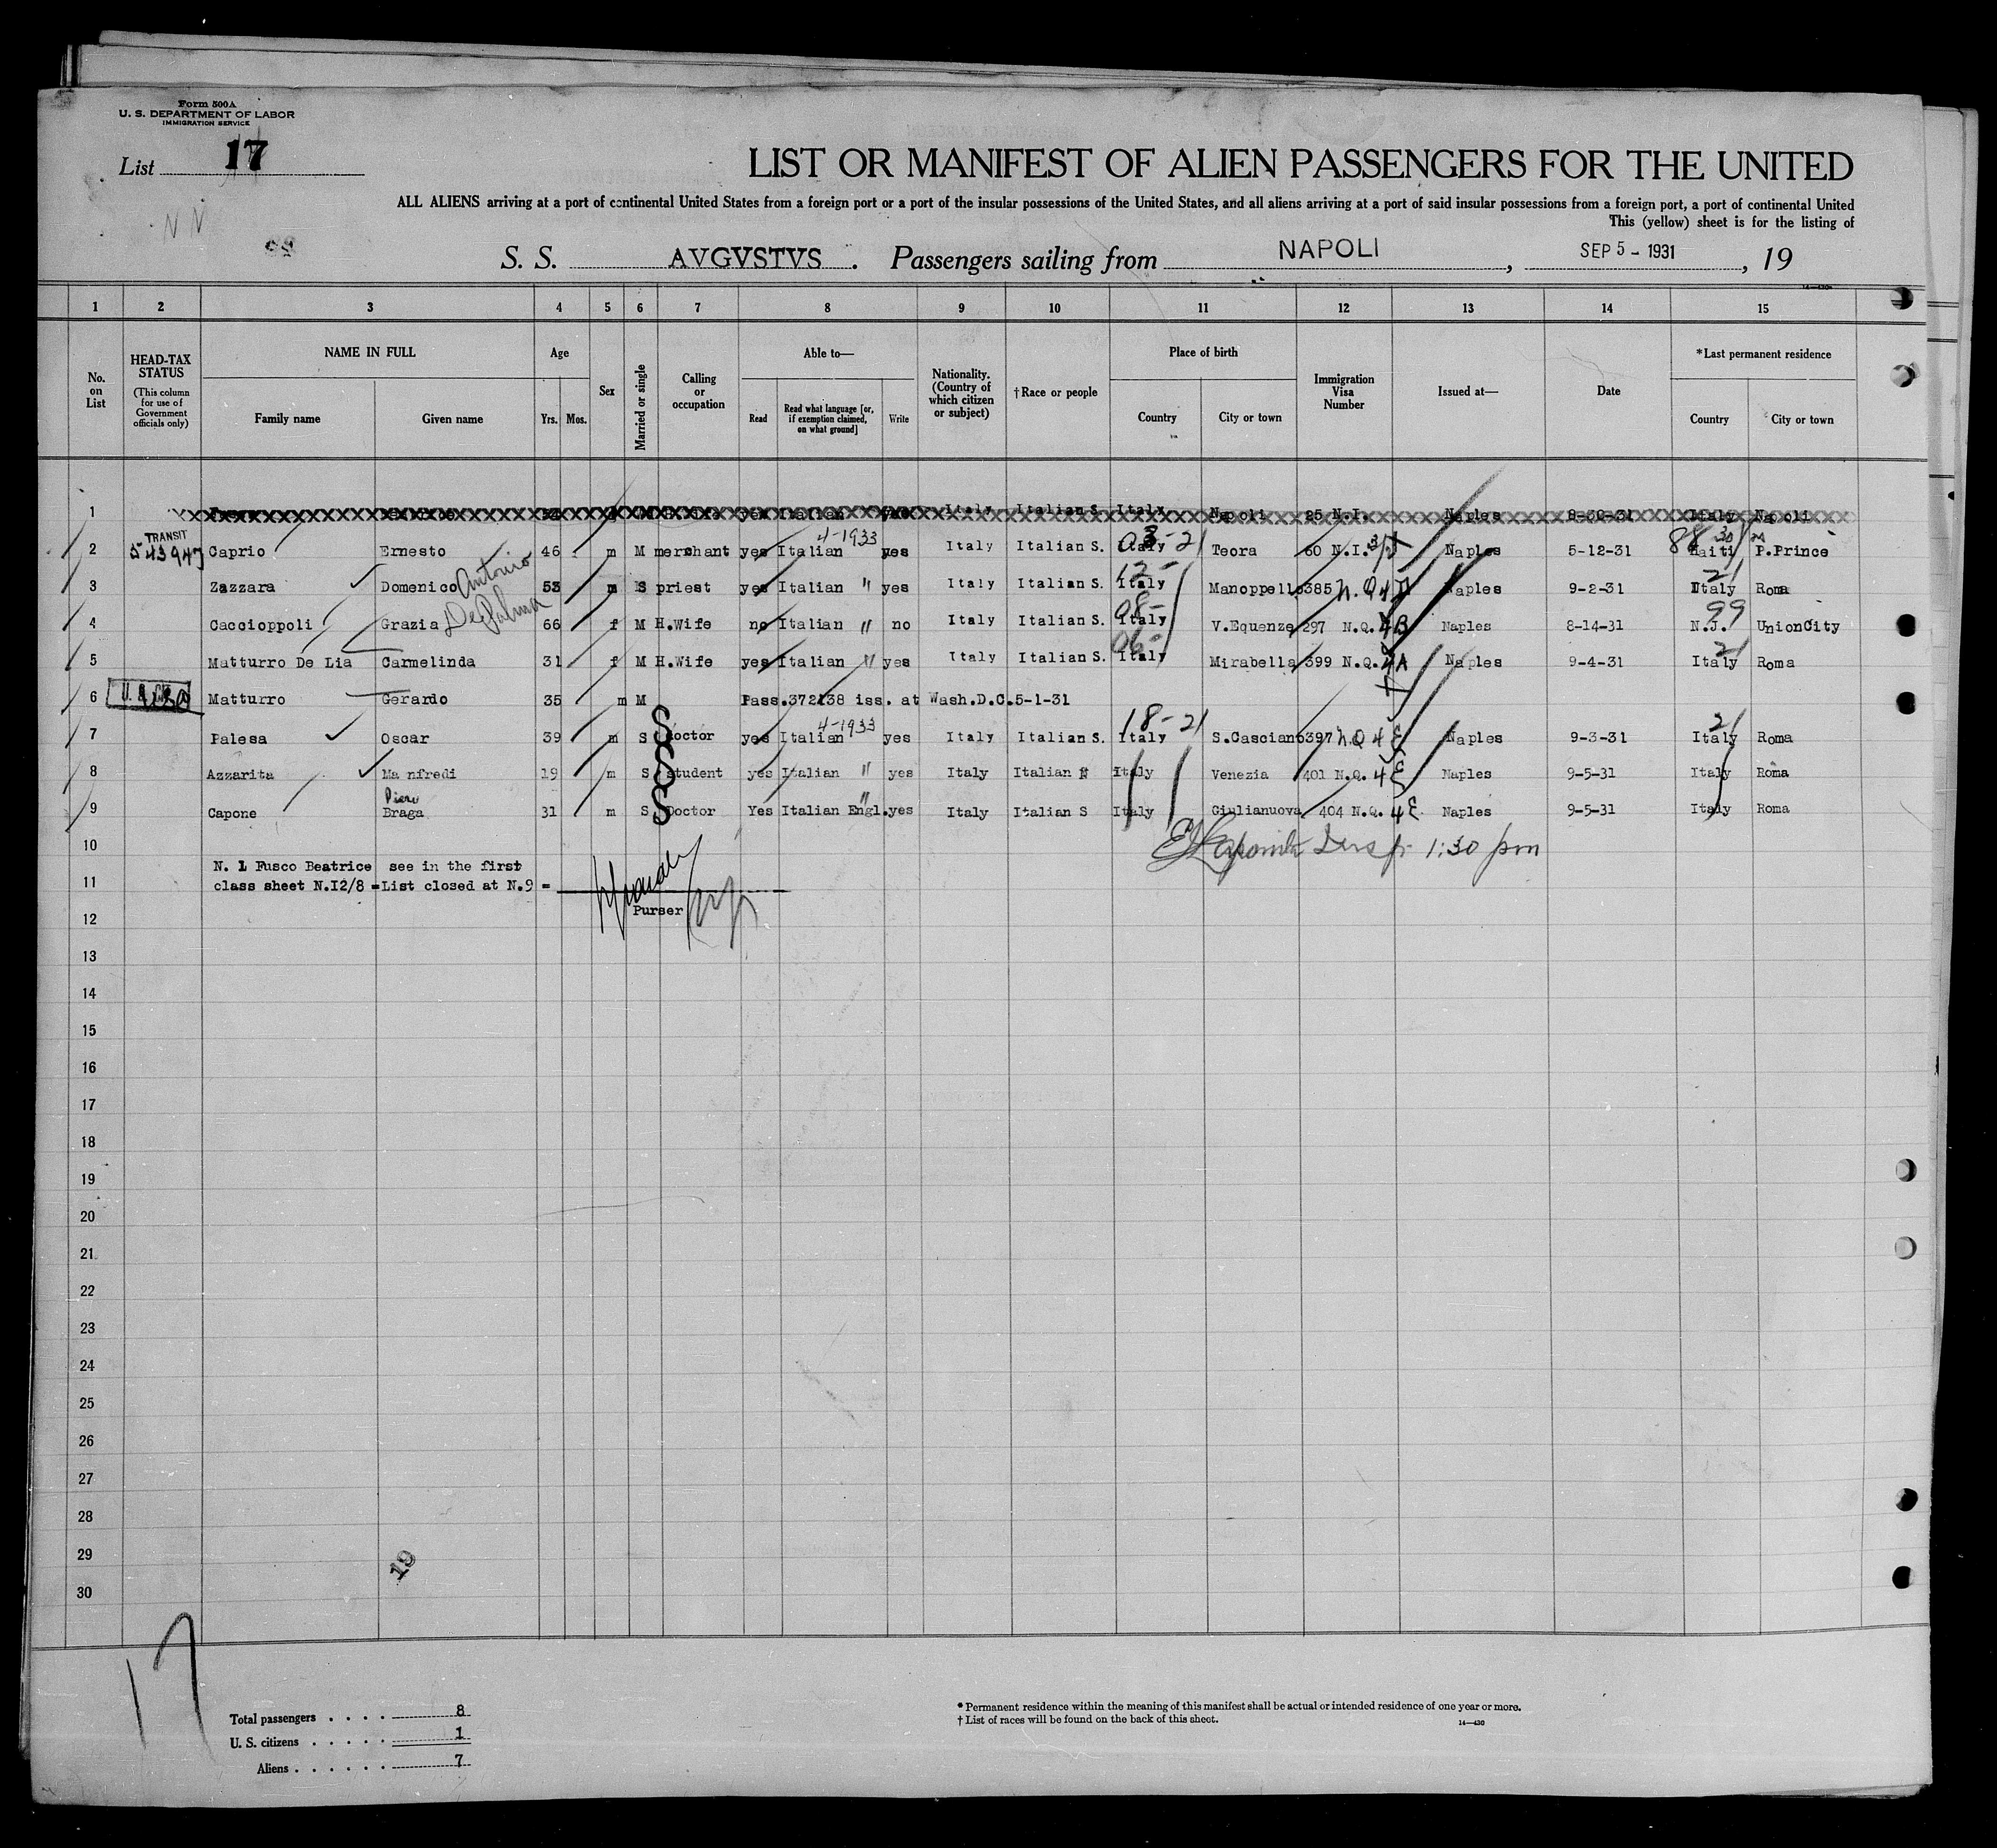 Form 500A
U. S. DEPARTMENT OF LABOR
IMMIGRATION SERVICE
List 17
LIST OR MANIFEST OF ALIEN PASSENGERS FOR THE UNITED
ALL ALIENS arriving at a port of continental United States from a foreign port or a port of the insular possessions of the United States, and all aliens arriving at a port of said insular possessions from a foreign port, a port of continental United
This (yellow) sheet is for the listing of
N N
S. S. AVGVSTVS . Passengers sailing from NAPOLI , SEP 5 - 1931 , 19
1 2 3 4 5 6 7 8 9 10 11 12 13 14 15
No. on List
HEAD-TAX STATUS
(This column for use of Government officials only)
NAME IN FULL
Family name
Given name
Age
Yrs.
Mos.
Sex
Married or single
Calling or occupation
Able to—
Read
Read what language [or, if exemption claimed, on what ground]
Write
Nationality. (Country of which citizen or subject)
†Race or people
Place of birth
Country
City or town
Immigration Visa Number
Issued at—
Date
*Last permanent residence
Country
City or town
1 yes Italian Italy Italian S. Italy Napoli 25 N.I. Naples 8-30-31 Italy Napoli
TRANSIT
4-1933 03-21 88 30
2 543947 Caprio Ernesto 46 m M merchant yes Italian yes Italy Italian S. Italy Teora 60 N.I. 3 Naples 5-12-31 Haiti P.Prince
12- 21
3 Zazzara Domenico Antonio 53 m S priest yes Italian " yes Italy Italian S. Italy Manoppello 385 N.Q 4 D Naples 9-2-31 Italy Roma
08- 99
4 Caccioppoli Grazia De Palma 66 f M H.Wife no Italian " no Italy Italian S. Italy V.Equenze 297 N.Q. 4 B Naples 8-14-31 N.J. UnionCity
06- 21
5 Matturro De Lia Carmelinda 31 f M H.Wife yes Italian " yes Italy Italian S. Italy Mirabella 399 N.Q. 4 A Naples 9-4-31 Italy Roma
6 Matturro Gerardo 35 m M Pass.372138 iss. at Wash.D.C.5-1-31
4-1933 18-21 21
7 Palesa Oscar 39 m S Doctor yes Italian yes Italy Italian S. Italy S.Casciano 397 N.Q 4 E Naples 9-3-31 Italy Roma
8 Azzarita Manfredi 19 m S student yes Italian " yes Italy Italian N Italy Venezia 401 N.Q. 4 E Naples 9-5-31 Italy Roma
Piero
9 Capone Braga 31 m S Doctor Yes Italian Engl. yes Italy Italian S Italy Giulianuova 404 N.Q. 4 E Naples 9-5-31 Italy Roma
10
1:30 pm
N. 1 Fusco Beatrice see in the first
11 class sheet N.I2/8 =List closed at N.9 =
Purser
12
13
14
15
16
17
18
19
20
21
22
23
24
25
26
27
28
29
30
19
17
Total passengers . . . . 8
U. S. citizens . . . . . 1
Aliens . . . . . . 7
* Permanent residence within the meaning of this manifest shall be actual or intended residence of one year or more.
† List of races will be found on the back of this sheet.
14—430